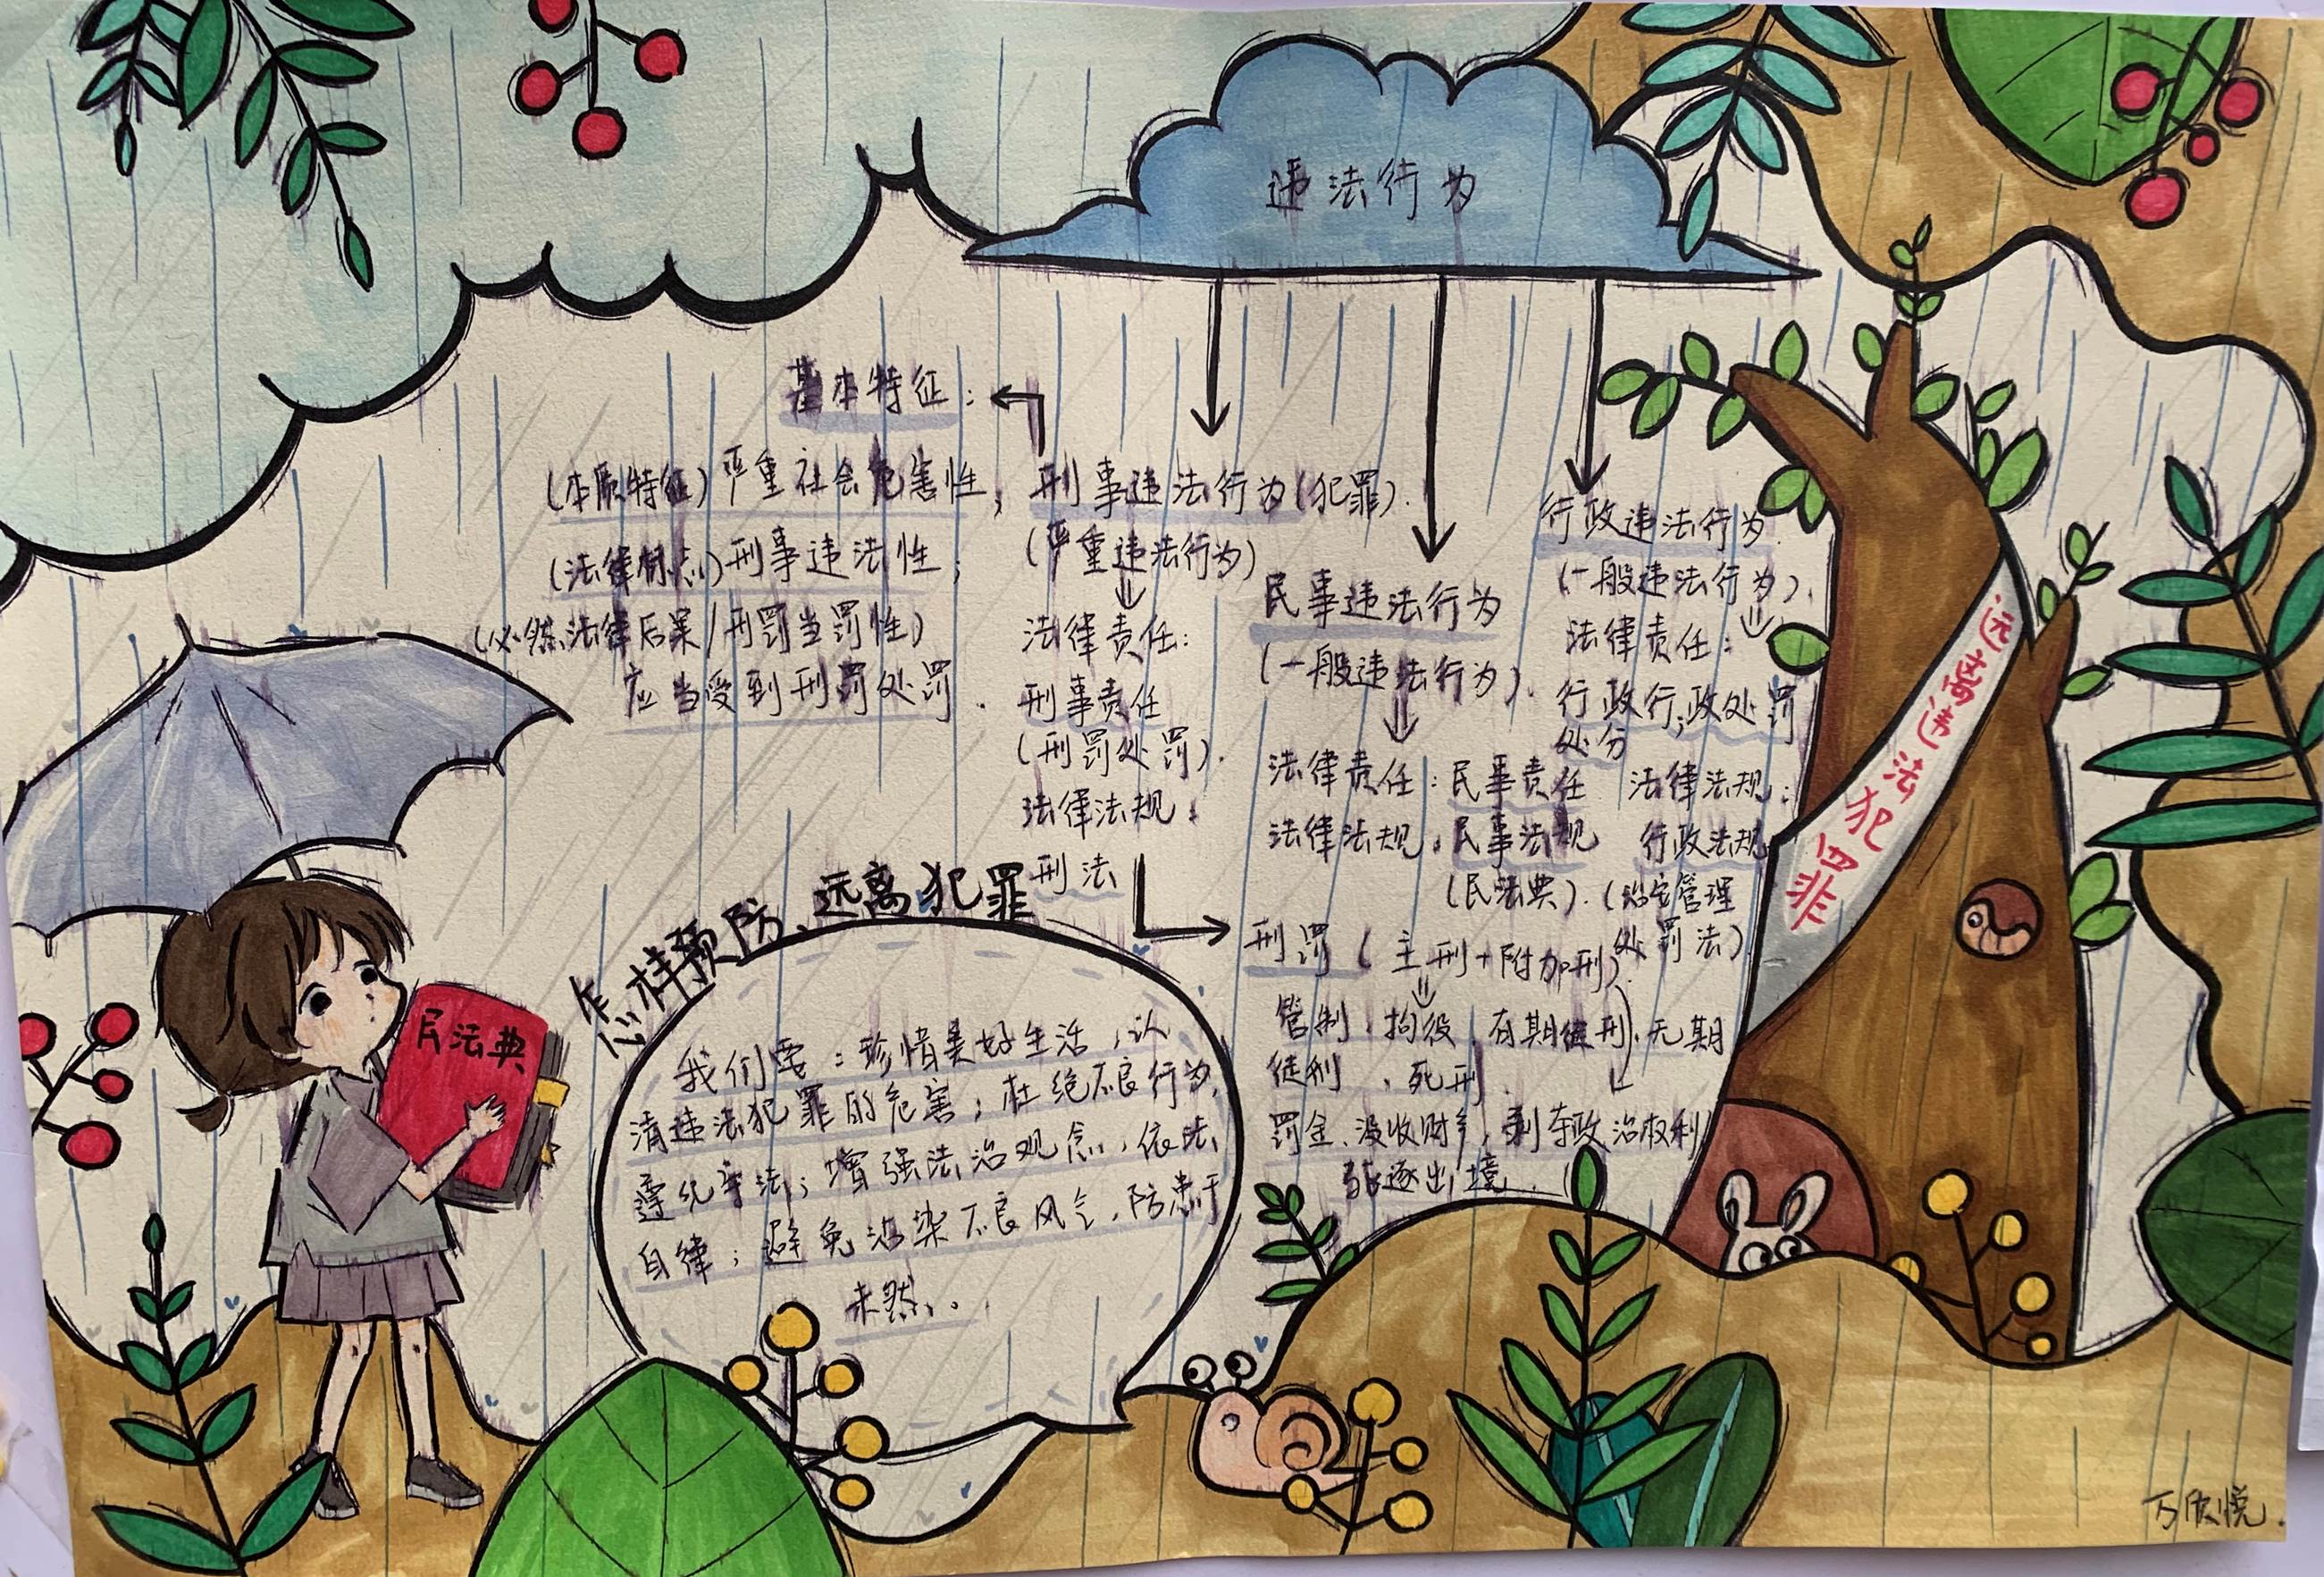 违法行为
基本特征：
(本质特征)严重社会危害性；
(法律标志)刑事违法性；
(必然法律后果/刑罚当罚性)
应当受到刑罚处罚.
刑事违法行为(犯罪).
(严重违法行为)
法律责任：
刑事责任
(刑罚处罚).
法律法规：
刑法
民事违法行为
(一般违法行为).
法律责任：民事责任
法律法规：民事法规
(民法典).
行政违法行为.
(一般违法行为).
法律责任：
行政行政处罚
处分
法律法规：
行政法规
(治安管理
处罚法)
刑罚(主刑+附加刑)
管制、拘役、有期徒刑、无期
徒刑、死刑.
罚金、没收财产，剥夺政治权利
驱逐出境.
远离违法犯罪
怎样预防、远离犯罪
我们要：珍惜美好生活，认
清违法犯罪的危害；杜绝不良行为，
遵纪守法；增强法治观念，依法
自律；避免沾染不良风气，防患于
未然。
民法典
万欣悦.